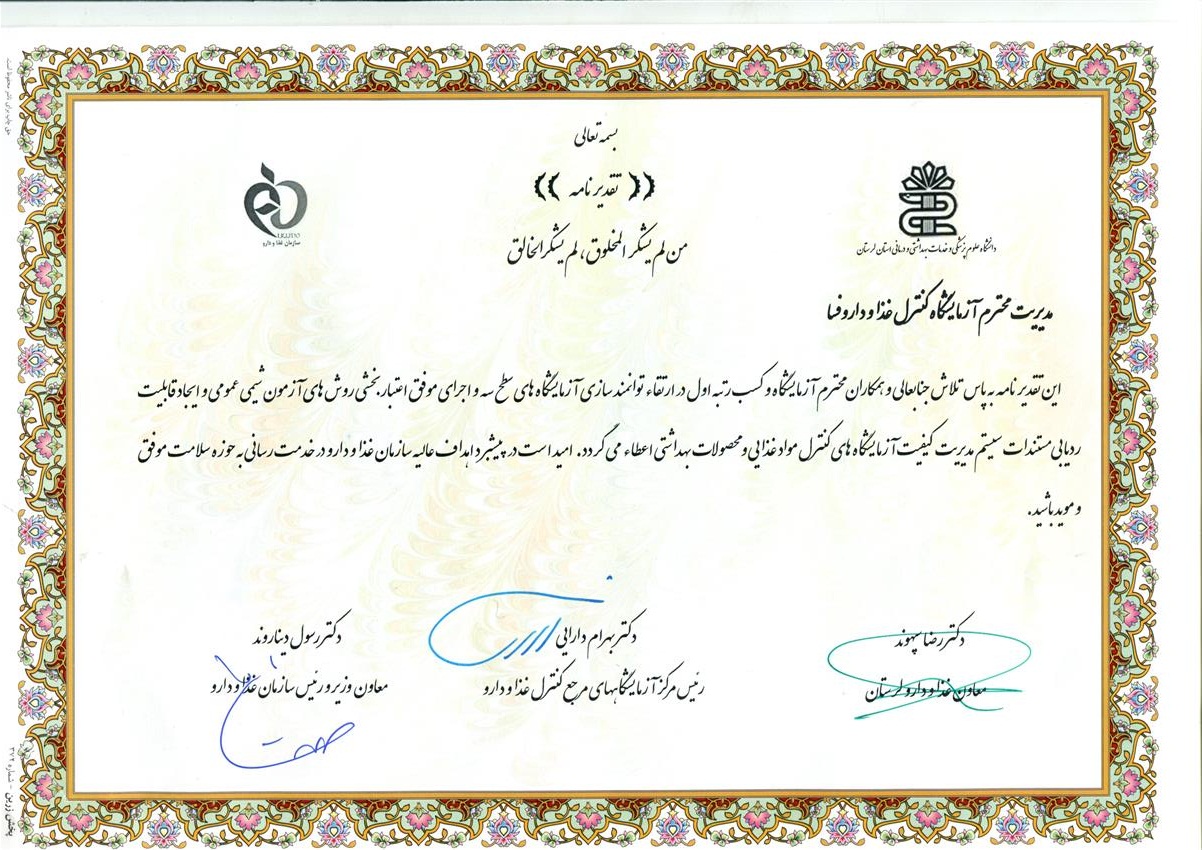 بسمه تعالی
(( تقدیر نامه ))
من لم یشکر المخلوق، لم یشکر الخالق
سازمان غذا و دارو
دانشگاه علوم پزشکی و خدمات بهداشتی و درمانی استان لرستان
مدیریت محترم آزمایشگاه کنترل غذا و دارو فسا
این تقدیر نامه به پاس تلاش جنابعالی و همکاران محترم آزمایشگاه و کسب رتبه اول در ارتقاء توانمند سازی آزمایشگاه های سطح سه و اجرای موفق اعتبار بخشی روش های آزمون شیمی عمومی و ایجاد قابلیت
ردیابی مستندات سیستم مدیریت کیفیت آزمایشگاه های کنترل مواد غذایی و محصولات بهداشتی اعطاء می گردد. امید است در پیشبرد اهداف عالیه سازمان غذا و دارو در خدمت رسانی به حوزه سلامت موفق
و موید باشید.
دکتر رضا سپهوند
معاون غذا و دارو لرستان
دکتر بهرام دارایی
رئیس مرکز آزمایشگاههای مرجع کنترل غذا و دارو
دکتر رسول دیناروند
معاون وزیر و رئیس سازمان غذا و دارو
حق چاپ برای ناشر محفوظ است
پخش زرین - شماره ۳۷۲